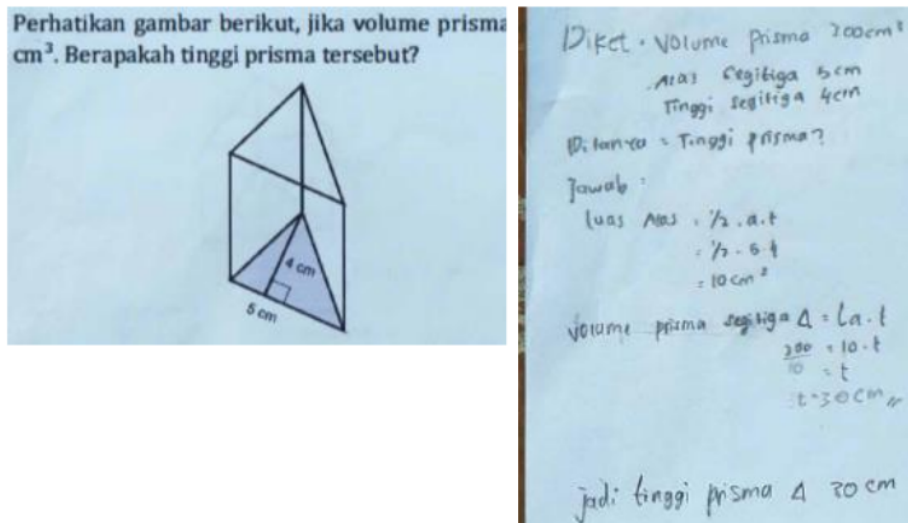 Perhatikan gambar berikut, jika volume prisma
cm³. Berapakah tinggi prisma tersebut?
4 cm
5 cm
Diket : Volume Prisma 300cm³
Alas Segitiga 5cm
Tinggi Segitiga 4cm
Ditanya : Tinggi prisma?
Jawab :
luas Alas : 1/2 . a . t
= 1/2 . 5 . 4
= 10 cm²
Volume prisma segitiga Δ = La . t
300 = 10 . t
10 = t
t = 30 cm //
jadi tinggi prisma Δ 30 cm